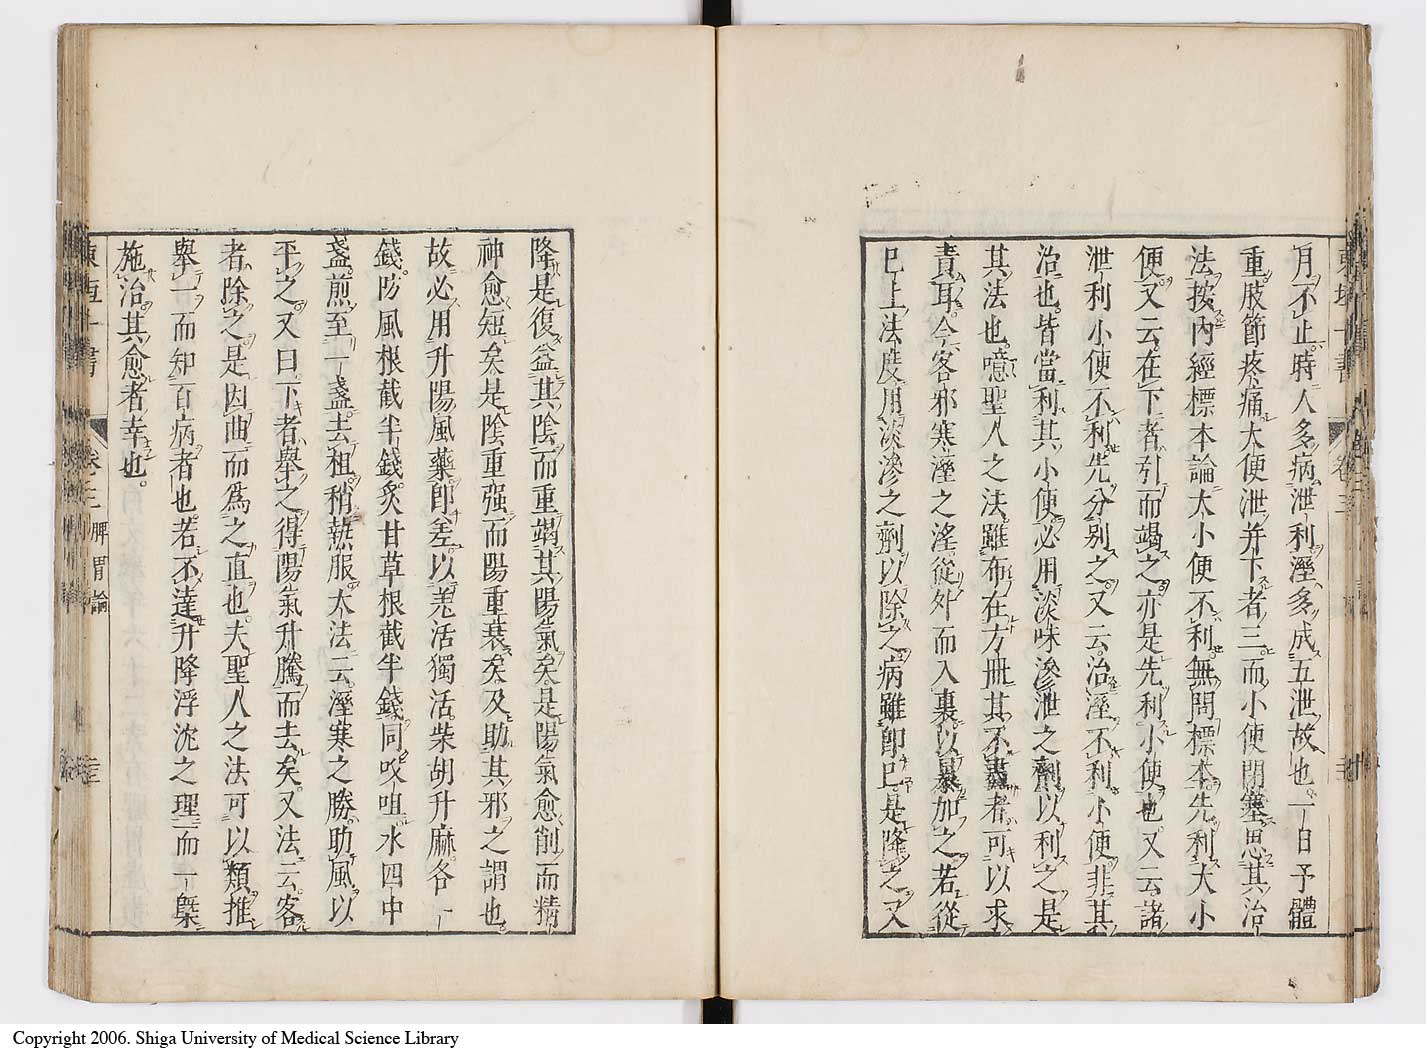 月不止時人多病泄利溼多成五泄故也一日予體
重肢節疼痛大便泄并下者三而小便閉塞思其治
法按內經標本論大小便不利無問標本先利大小
便又云在下者引而竭之亦是先利小便也又云諸
泄利小便不利先分別之又云治溼不利小便非其
治也皆當利其小便必用淡味滲泄之劑以利之是
其法也噫聖人之法雖布在方冊其不盡者可以求
責耳今客邪寒溼之淫從外而入裏以暴加之若從
巳上法度用淡滲之劑以除之病雖即巳是降之又
降是復益其陰而重竭其陽氣矣是陽氣愈削而精
神愈短矣是陰重强而陽重衰矣及助其邪之謂也
故必用升陽風藥即差以羌活獨活柴胡升麻各一
錢防風根截半錢炙甘草根截半錢同㕮咀水四中
盞煎至一盞去柤稍熱服大法云溼寒之勝助風以
平之又曰下者舉之得陽氣升騰而去矣又法云客
者除之是因曲而爲之直也夫聖人之法可以類推
舉一而知百病者也若不達升降浮沈之理而一槩
施治其愈者幸也。
東垣十書 卷三 脾胃論